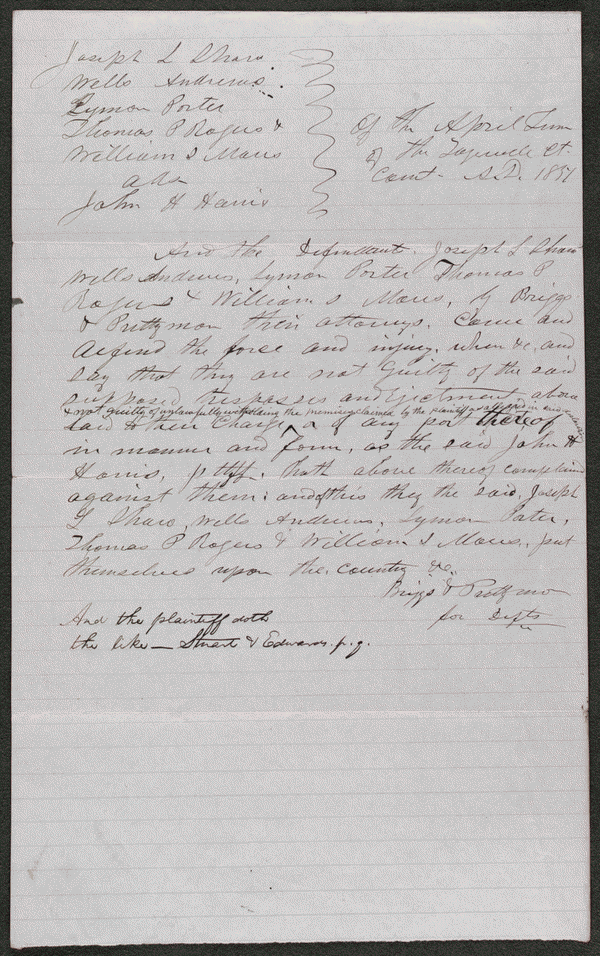 Joseph L Shaw.
Wells Andrews.
Lyman Porter
Thomas P Rogers &
William S Maus
ads
John H Harris
Of the April Term
of the Tazewell Ct.
Court - A.D. 1851
And the Defendants Joseph L Shaw
Wells Andrews, Lyman Porter Thomas P
Rogers & William S Maus, by Briggs
& Prettyman their attorneys. Come and
defend the force and injury, when &c, and
say that they are not guilty of the said
supposed trespasses and Ejectment above
& not guilty of unlawfully witholding the premises claimed by the plaintiff as alledged in
said to their Charge or of any part thereof
in manner and form, as the said John H
Harris, pltff. hath above thereof complained
against them: and of this they the said, Joseph
L Shaw, Wells Andrews, Lyman Porter,
Thomas P Rogers & William S Maus, put
themselves upon the country &c.
Briggs & Prettyman
for Defts
And the plaintiff doth
the like — Stuart & Edwards p.q.